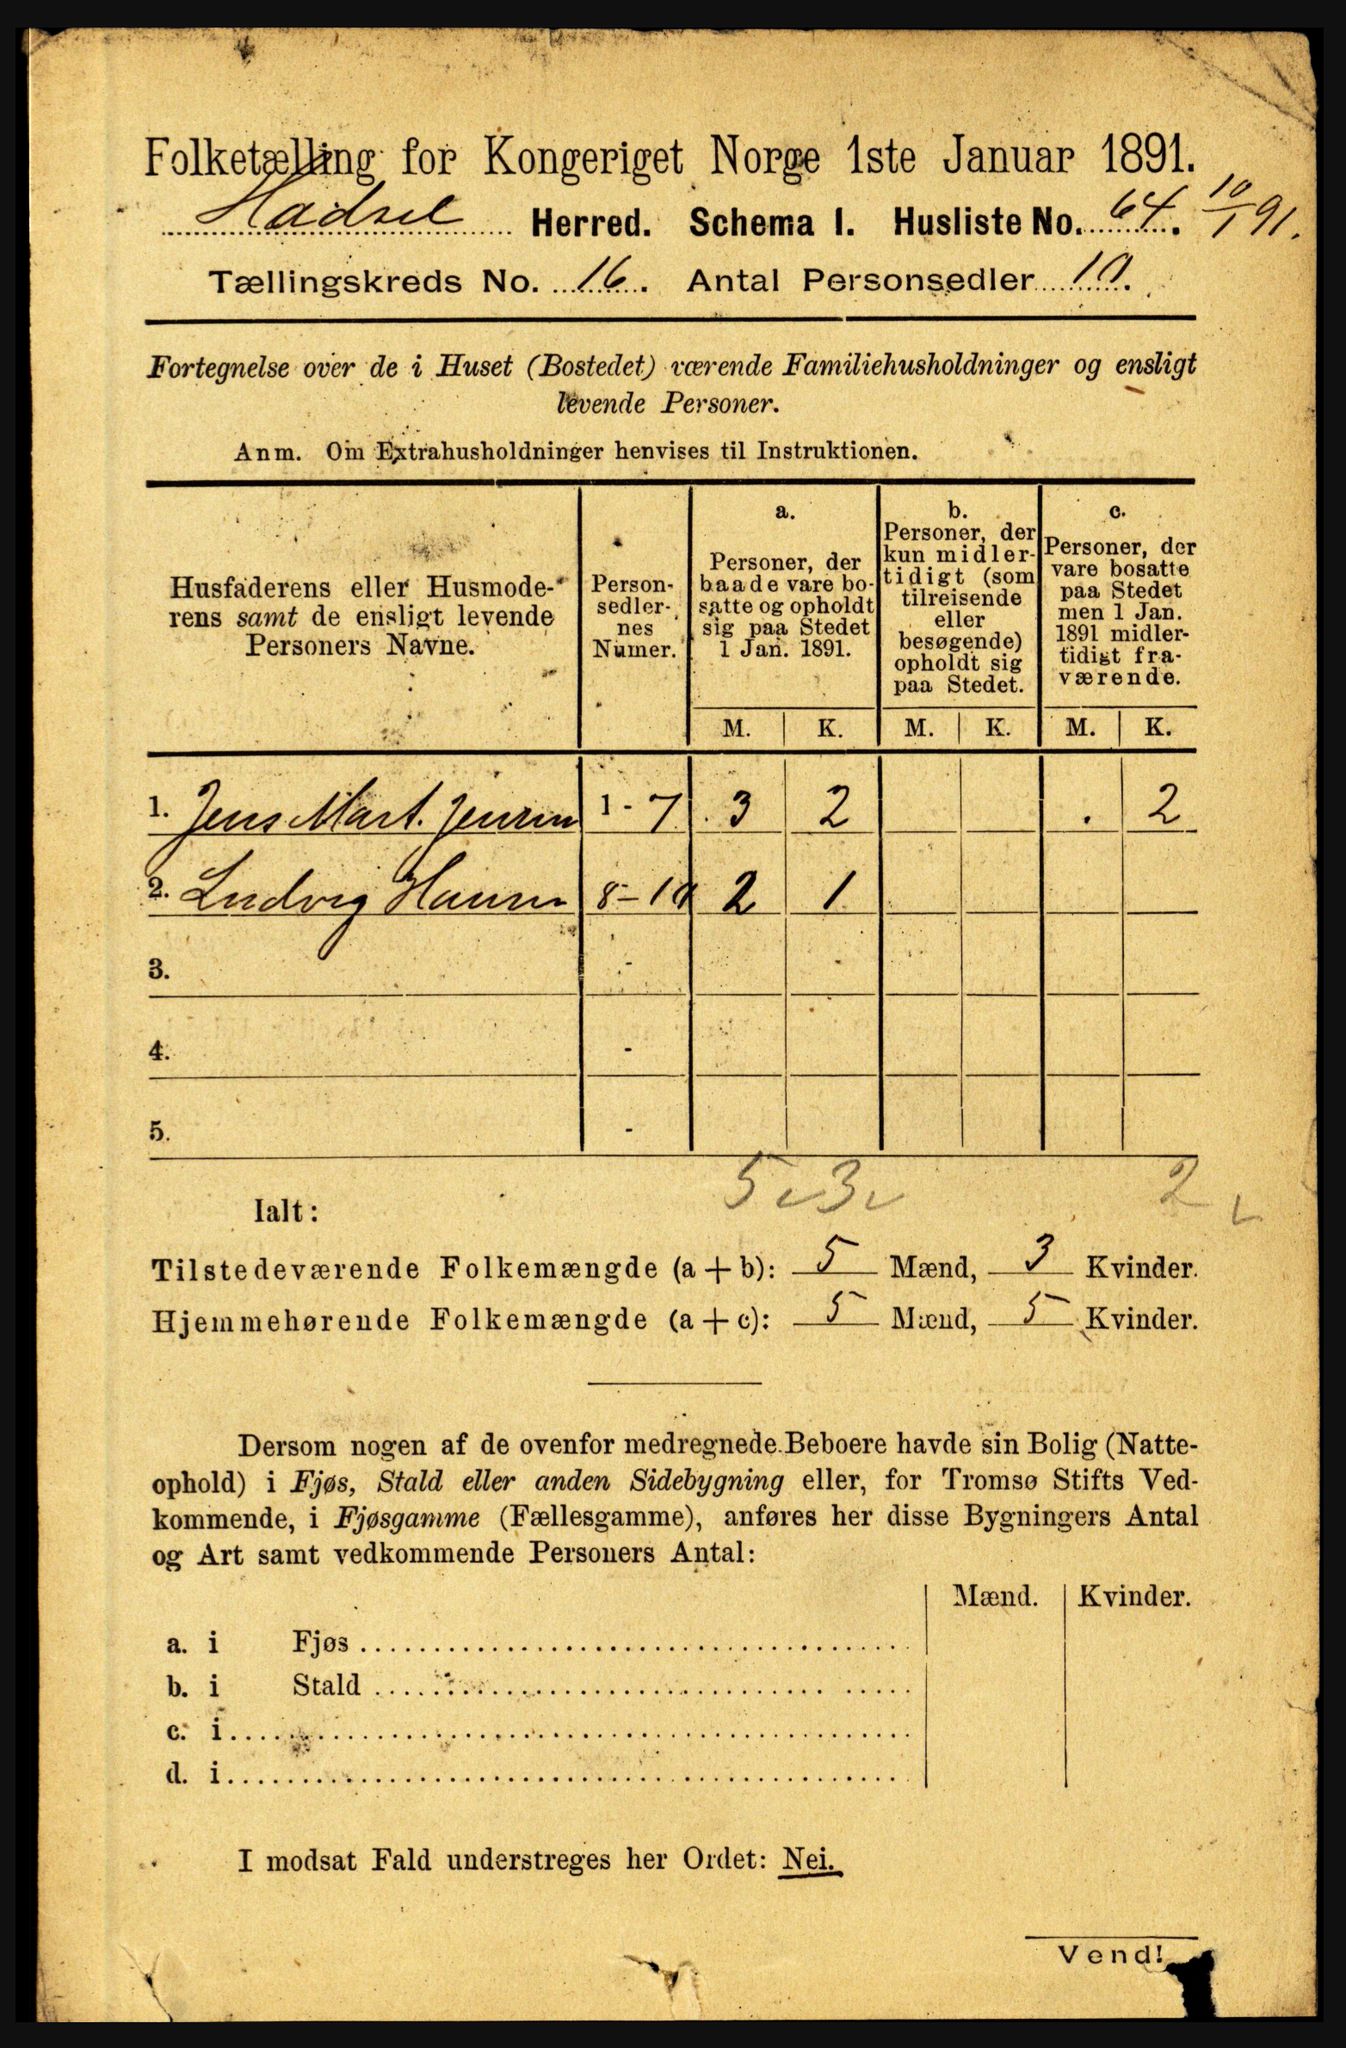 Folketælling for Kongeriget Norge 1ste Januar 1891.
Hadsel Herred. Schema I. Husliste No. 64. 10/1 91.
Tællingskreds No. 16. Antal Personsedler 10.
Fortegnelse over de i Huset (Bostedet) værende Familiehusholdninger og ensligt
levende Personer.
Anm. Om Extrahusholdninger henvises til Instruktionen.
Husfaderens eller Husmode-
rens samt de ensligt levende
Personers Navne.
Person-
sedler-
nes
Numer.
a.
Personer, der
baade vare bo-
satte og opholdt
sig paa Stedet
1 Jan. 1891.
b.
Personer, der
kun midler-
tidigt (som
tilreisende
eller
besøgende)
opholdt sig
paa Stedet.
c.
Personer, der
vare bosatte
paa Stedet
men 1 Jan.
1891 midler-
tidigt fra-
værende.
M. K. M. K. M. K.
1. Jens Mart. Jensen 1 - 7 3 2 . 2
2. Ludvig Hansen 8 - 10 2 1
3. -
4. -
5. -
5 3 2
Ialt:
Tilstedeværende Folkemængde (a + b): 5 Mænd, 3 Kvinder.
Hjemmehørende Folkemængde (a + c): 5 Mænd, 5 Kvinder.
Dersom nogen af de ovenfor medregnede Beboere havde sin Bolig (Natte-
ophold) i Fjøs, Stald eller anden Sidebygning eller, for Tromsø Stifts Ved-
kommende, i Fjøsgamme (Fællesgamme), anføres her disse Bygningers Antal
og Art samt vedkommende Personers Antal:
Mænd. Kvinder.
a. i Fjøs
b. i Stald
c. i
d. i
I modsat Fald understreges her Ordet: Nei.
Vend!